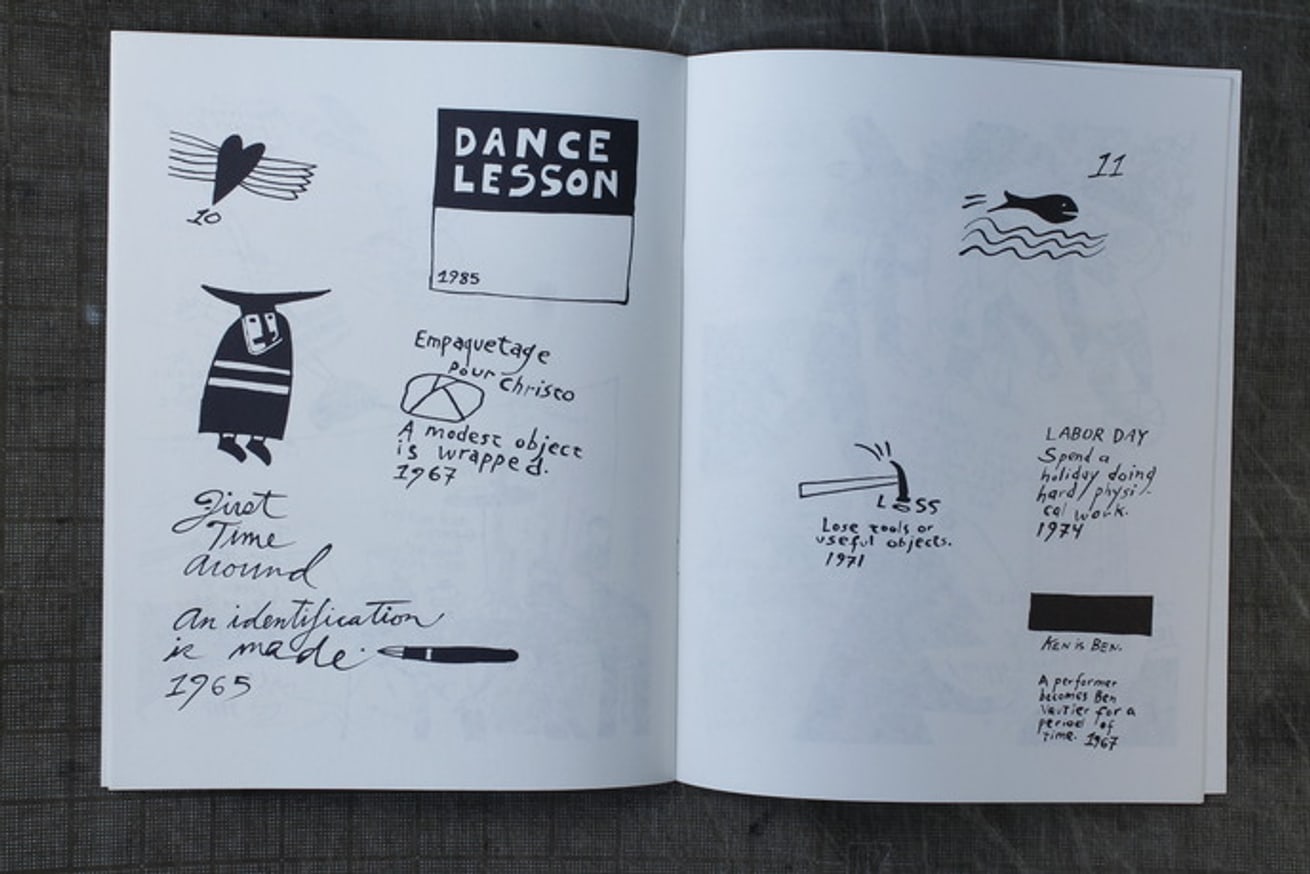 10
DANCE
LESSON
1985
Empaquetage
pour Christo
A modest object
is wrapped.
1967
First
Time
around
An identification
is made.
1965
11
LOSS
Lose tools or
useful objects.
1971
LABOR DAY
Spend a
holiday doing
hard physi-
cal work.
1974
KEN IS BEN.
A performer
becomes Ben
Vautier for a
period of
time. 1967